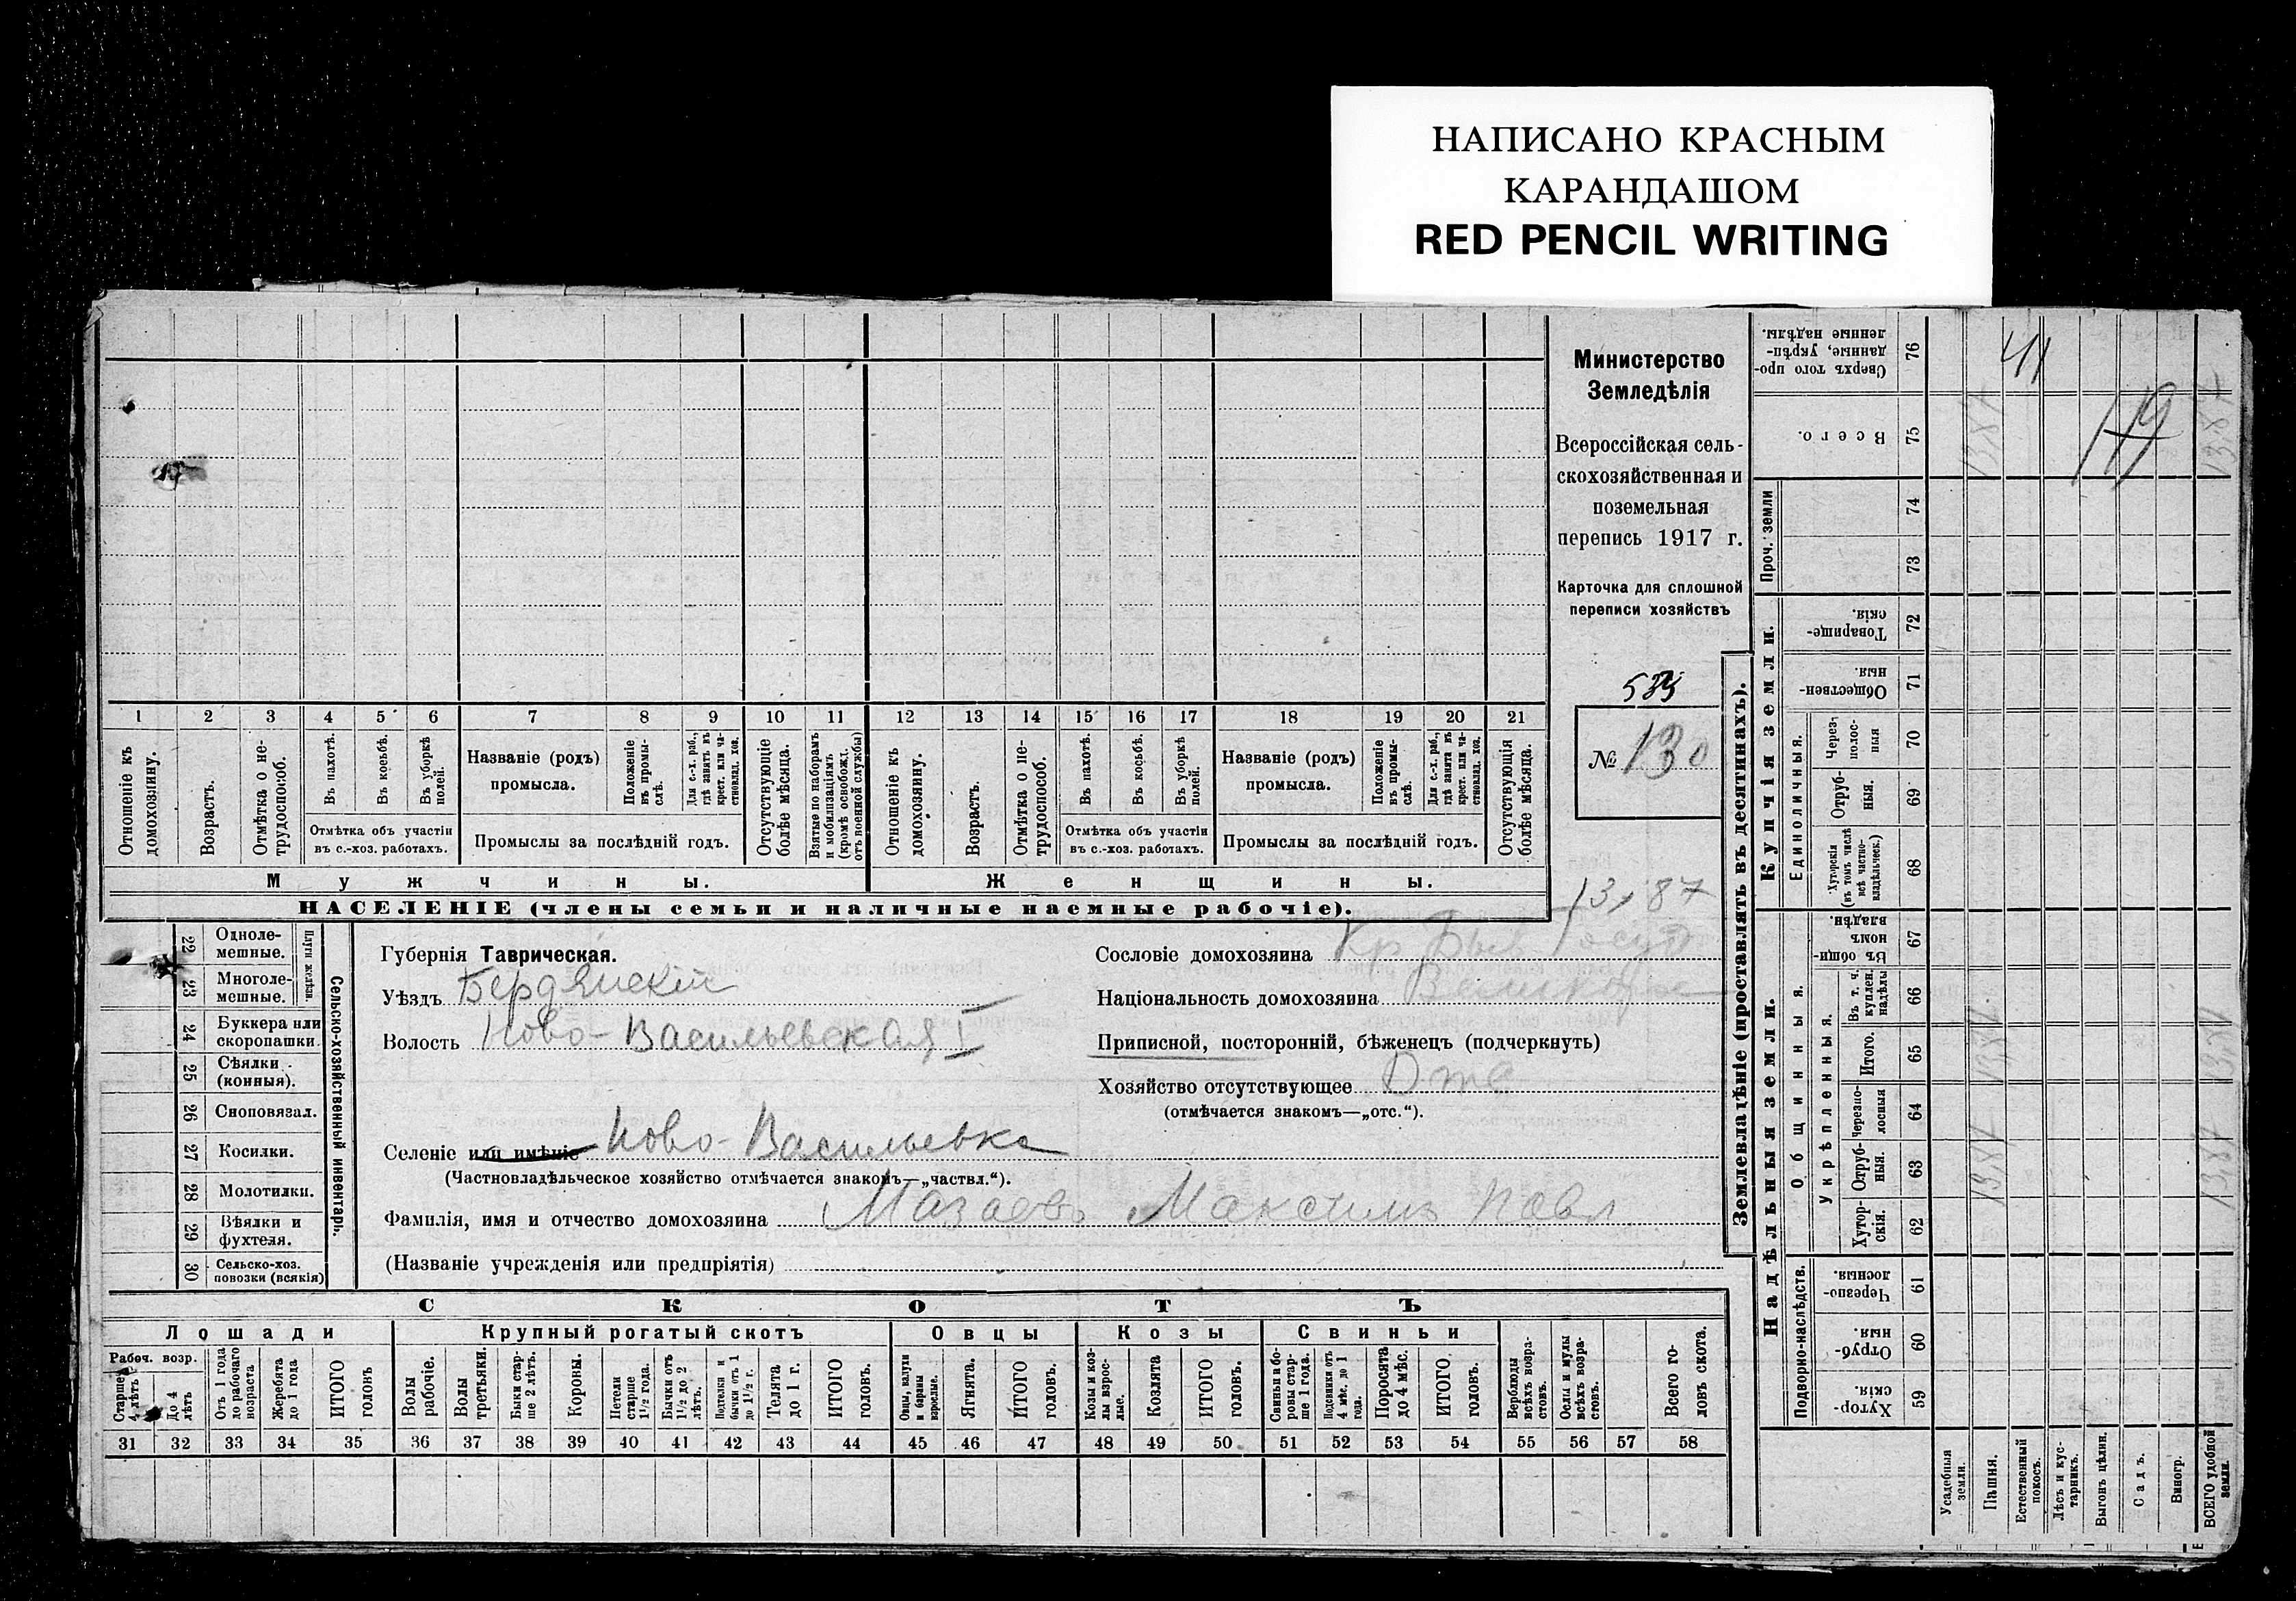 НАПИСАНО КРАСНЫМ
КАРАНДАШОМ
RED PENCIL WRITING
Министерство
Земледѣлія
Всероссійская сель-
скохозяйственная и
поземельная
перепись 1917 г.
Карточка для сплошной
переписи хозяйствъ
№ 130
13,87
1 2 3 4 5 6 7 8 9 10 11 12 13 14 15 16 17 18 19 20 21
Отношеніе къ домохозяину.
Возрастъ.
Отмѣтка о не-трудоспособ.
Въ пахотѣ.
Въ косьбѣ.
Въ уборкѣ полей.
Отмѣтка объ участіи
въ с.-хоз. работахъ.
Названіе (родъ)
промысла.
Положеніе въ промы-слѣ.
Для с.-х. раб., гдѣ занятъ въ крест. или ча-стновлад. хоз.
Промыслы за послѣдній годъ.
Отсутствующіе болѣе мѣсяца.
Взятые по наборамъ и мобилизаціямъ (кромѣ освобожд. отъ военной службы)
Отношеніе къ домохозяину.
Возрастъ.
Отмѣтка о не-трудоспособ.
Въ пахотѣ.
Въ косьбѣ.
Въ уборкѣ полей.
Отмѣтка объ участіи
въ с.-хоз. работахъ.
Названіе (родъ)
промысла.
Положеніе въ промы-слѣ.
Для с.-х. раб., гдѣ занята въ крест. или ча-стновлад. хоз.
Промыслы за послѣдній годъ.
Отсутствующія болѣе мѣсяца.
Мужчины.
Женщины.
НАСЕЛЕНІЕ (члены семьи и наличные наемные рабочіе).
22 Одноле-мешные.
23 Многоле-мешные.
Плуги желѣзн.
24 Буккера или скоропашки.
25 Сѣялки (конныя).
26 Сноповязал.
27 Косилки.
28 Молотилки.
29 Вѣялки и фухтеля.
30 Сельско-хоз. повозки (всякія)
Сельско-хозяйственный инвентарь.
Губернія Таврическая.
Уѣздъ Бердянскій
Волость Ново-Васильевская I
Селеніе или имѣніе Ново-Васильевка
(Частновладѣльческое хозяйство отмѣчается знакомъ—„частвл.“).
Фамилія, имя и отчество домохозяина Мазаевъ Максимъ Павл
(Названіе учрежденія или предпріятія)
Сословіе домохозяина Кр Быв Госуд
Національность домохозяина Великор
Приписной, посторонній, бѣженецъ (подчеркнуть)
Хозяйство отсутствующее Отс
(отмѣчается знакомъ—„отс.“).
СКОТЪ
Лошади
Крупный рогатый скотъ
Овцы
Козы
Свиньи
Рабоч. возр.
Старше 4 лѣтъ
До 4 лѣтъ
Отъ 1 года до рабочаго возраста
Жеребята до 1 года
ИТОГО головъ
Волы рабочіе.
Волы третьяки.
Быки стар-ше 2 лѣтъ.
Коровы.
Нетели старше 1½ года.
Бычки отъ 1½ до 2 лѣтъ.
Подтелки и бычки отъ 1 до 1½ г.
Телята до 1 г.
ИТОГО головъ.
Овцы, валухи и бараны взрослые.
Ягнята.
ИТОГО головъ.
Козы и коз-лы взрос-лые.
Козлята
ИТОГО головъ.
Свиньи и бо-ровы стар-ше 1 года.
Подсвинки отъ 4 мѣс. до 1 года.
Поросята до 4 мѣс.
ИТОГО головъ.
Верблюды всѣхъ возра-стовъ.
Ослы и мулы всѣхъ возра-стовъ.
Всего го-ловъ скота.
31 32 33 34 35 36 37 38 39 40 41 42 43 44 45 46 47 48 49 50 51 52 53 54 55 56 57 58
Землевладѣніе (проставлять въ десятинахъ).
Купчія земли.
Надѣльныя земли.
76 Сверхъ того про-данные, укрѣп-ленные надѣлы.
41
75 Всего.
13,87
119
13,87
Проч. земли
74
73
72 Товарище-скія.
71 Обществен-ныя.
Единоличныя.
70 Через-полос-ныя
69 Отруб-ныя.
68 Хуторскія (въ томъ числѣ всѣ частно-владѣльческ.)
Общинныя.
67 Въ общин-номъ владѣн.
Укрѣпленныя.
66 Въ т. ч. куплен. надѣлы
65 Итого.
13,87
13,87
64 Черезпо-лосныя
63 Отруб-ныя.
13,87
13,87
62 Хутор-скія.
Подворно-наслѣдств.
61 Черезпо-лосныя.
60 Отруб-ныя.
59 Хутор-скія.
Усадебныя земли.
Пашня.
Естественный покосъ.
Лѣсъ и кус-тарникъ.
Выгонъ цѣлин.
Садъ.
Виногр.
ВСЕГО удобной земли.